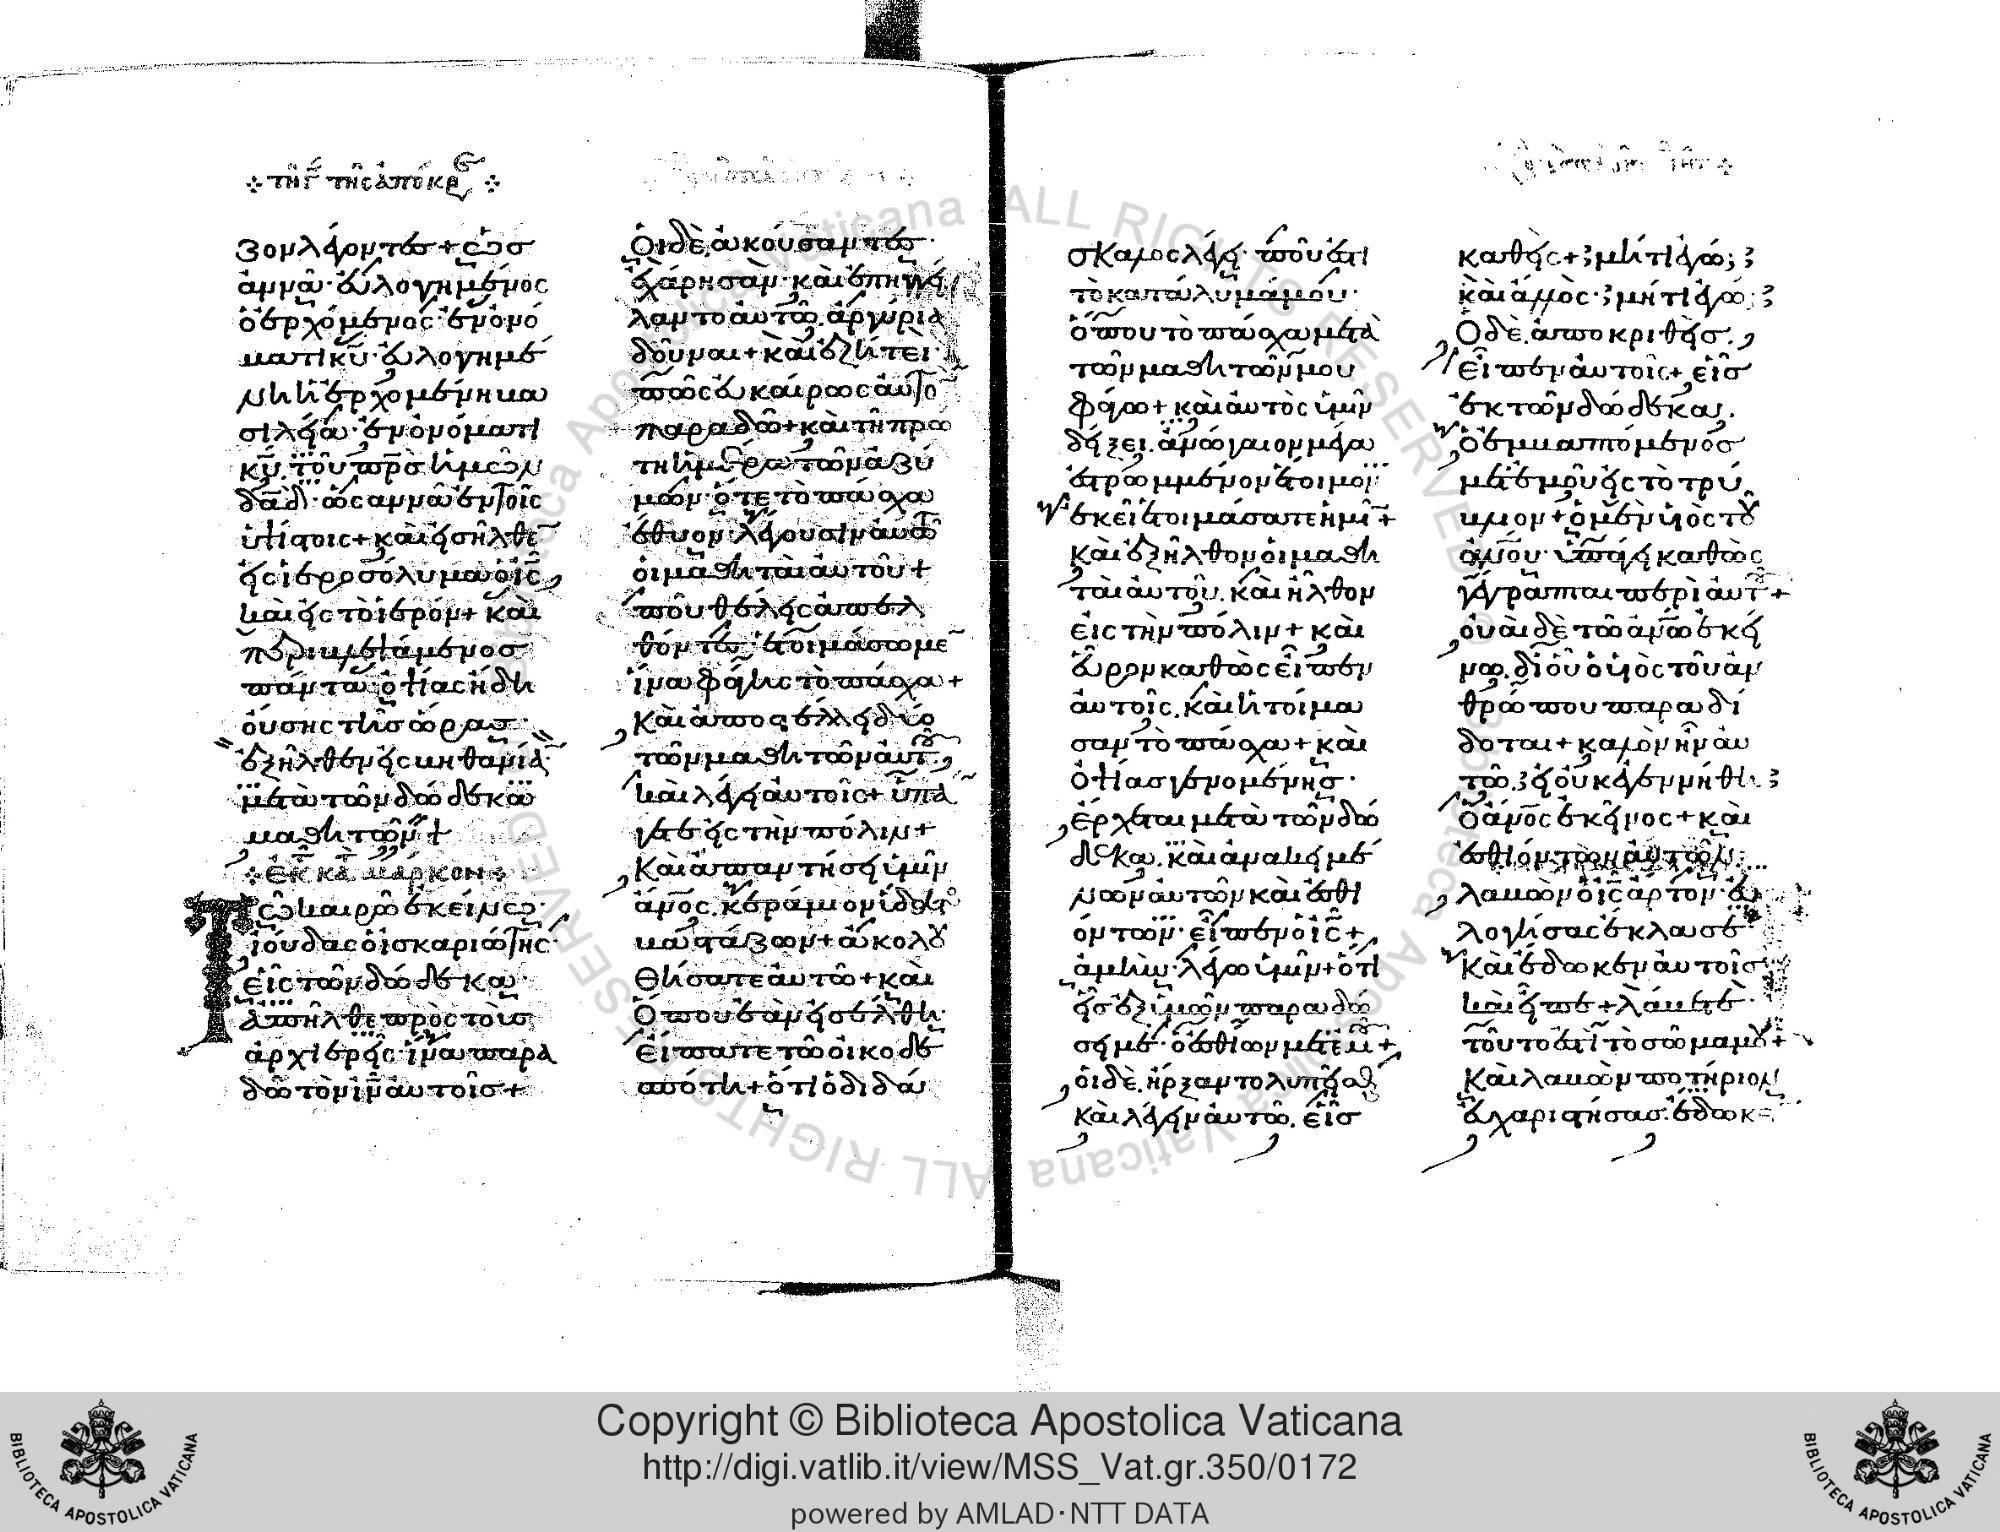 ⁘ τῆ γ΄ τῆς ἀπόκρ ⁘
ζον λέγοντες + ὡσ
αννά· εὐλογημένος
ὁ ἐρχόμενος· ἐν ὀνό
ματι κυ· εὐλογημέ
νη ἡ ἐρχομένη βα
σιλεία· ἐν ὀνόματι
κυ. τοῦ πρσ ἡμῶν
δαδ· ὡσαννὰ ἐν τοῖς
ὑψίστοις + καὶ εἰσῆλθε
εἰς ἱεροσόλυμα ὁ ις,
καὶ εἰς τὸ ἱερόν + καὶ
περιβλεψάμενος
πάντα· ὀψίας ἤδη
οὔσης τῆς ὥρας·
ἐξῆλθεν εἰς βηθανία
μετὰ τῶν δώδεκα
μαθητῶν +
⁘ ἐκ κατ μάρκον ⁘
Τῶ καιρῶ ἐκείνω·
ἰούδας ὁ ἰσκαριώτης·
εἷς τῶν δώδεκα
ἀπῆλθε πρὸς τοὺς
ἀρχιερεῖς· ἵνα παρα
δῶ τὸν ιν αὐτοῖς +
Οἱ δὲ, ἀκούσαντες
ἐχάρησαν· καὶ ἐπηγγεί
λαντο αὐτῶ. ἀργύρια
δοῦναι + καὶ ἐζήτει·
πῶς εὐκαίρως αὐτὸ
παραδῶ + καὶ τῆ πρώ
τη ἡμέρα τῶν ἀζύ
μων· ὅτε τὸ πάσχα
ἔθυον· λέγουσιν αὐτῶ
οἱ μαθηταὶ αὐτοῦ +
ποῦ θέλεις ἀπελ
θόντες· ἑτοιμάσωμε
ἵνα φάγης τὸ πάσχα +
Καὶ ἀποστέλλει δύο
τῶν μαθητῶν αὐτοῦ,
καὶ λέγει αὐτοῖς + ὑπά
γετε εἰς τὴν πόλιν +
Καὶ ἀπαντήσει ὑμῖν
ανος. κεράμιον ὕδατος
βαστάζων + ἀκολου
θήσατε αὐτῶ + καὶ
Ὅπου ἐὰν εἰσέλθη·
εἴπατε τῶ οἰκοδε
σπότη + ὅτι ὁ διδά
σκαλος λέγει· ποῦ ἐστι
τὸ κατάλυμά μου·
ὅπου τὸ πάσχα μετὰ
τῶν μαθητῶν μου
φάγω + καὶ αὐτὸς ὑμῖν
δείξει. ἀνώγαιον μέγα
ἐστρωμμένον ἕτοιμον
ἐκεῖ ἑτοιμάσατε ἡμῖν +
Καὶ ἐξῆλθον οἱ μαθη
ταὶ αὐτοῦ. καὶ ἦλθον
εἰς τὴν πόλιν + καὶ
εὗρον καθὼς εἶπεν
αὐτοῖς. καὶ ἡτοίμα
σαν τὸ πάσχα + καὶ
ὀψίας γενομένης·
ἔρχεται μετὰ τῶν δώ
δεκα. καὶ ἀνακειμέ
νων αὐτῶν καὶ ἐσθι
όντων· εἶπεν ὁ ις +
ἀμὴν λέγω ὑμῖν + ὅτι
εἷς ἐξ ὑμῶν παραδώ
σει με· ὁ ἐσθίων μετ ἐμοῦ +
οἱ δὲ. ἤρξαντο λυπεῖσθ
Καὶ λέγειν αὐτῶ. εἷς
καθεῖς + ; μήτι ἐγώ; ;
καὶ ἄλλος· ; μήτι ἐγώ; ;
Ὁ δὲ. ἀποκριθεὶς.
Εἶπεν αὐτοῖς + εἷς
ἐκ τῶν δώδεκα.
Ὁ ἐμβαπτόμενος
μετ ἐμοῦ εἰς τὸ τρύ
βλιον + ὁ μὲν υἱὸς τοῦ
ανου· ὑπάγει καθὼς
γέγραπται περὶ αὐτ +
οὐαὶ δὲ τῶ ανω ἐκεί
νω. δι οὗ ὁ υἱὸς τοῦ ἀν
θρώπου παραδί
δοται + καλὸν ἦν αὐ
τῶ. ; εἰ οὐκ ἐγεννήθη ;
Ὁ ανος ἐκεῖνος + καὶ
ἐσθιόντων αὐτῶν·
λαβὼν ὁ ις ἄρτον· εὐ
λογήσας ἔκλασε
Καὶ ἔδωκεν αὐτοῖς
καὶ εἶπε + λάβετε·
τοῦτό ἐστι τὸ σῶμά μου +
Καὶ λαβὼν ποτήριον
εὐχαριστήσας. ἔδωκε
Biblioteca Apostolica Vaticana ALL RIGHTS RESERVED © Biblioteca Apostolica Vaticana ALL RIGHTS RESERVED
Copyright © Biblioteca Apostolica Vaticana
http://digi.vatlib.it/view/MSS_Vat.gr.350/0172
powered by AMLAD·NTT DATA
BIBLIOTECA APOSTOLICA VATICANA
BIBLIOTECA APOSTOLICA VATICANA